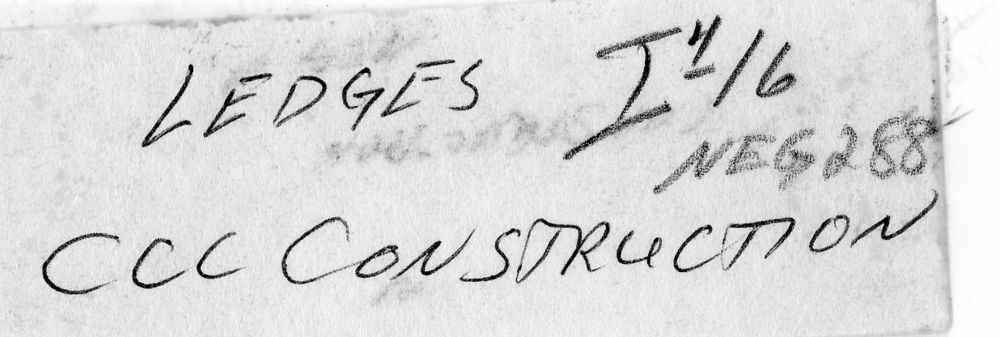 LEDGES I 4/16
NEG 288
CCC CONSTRUCTION